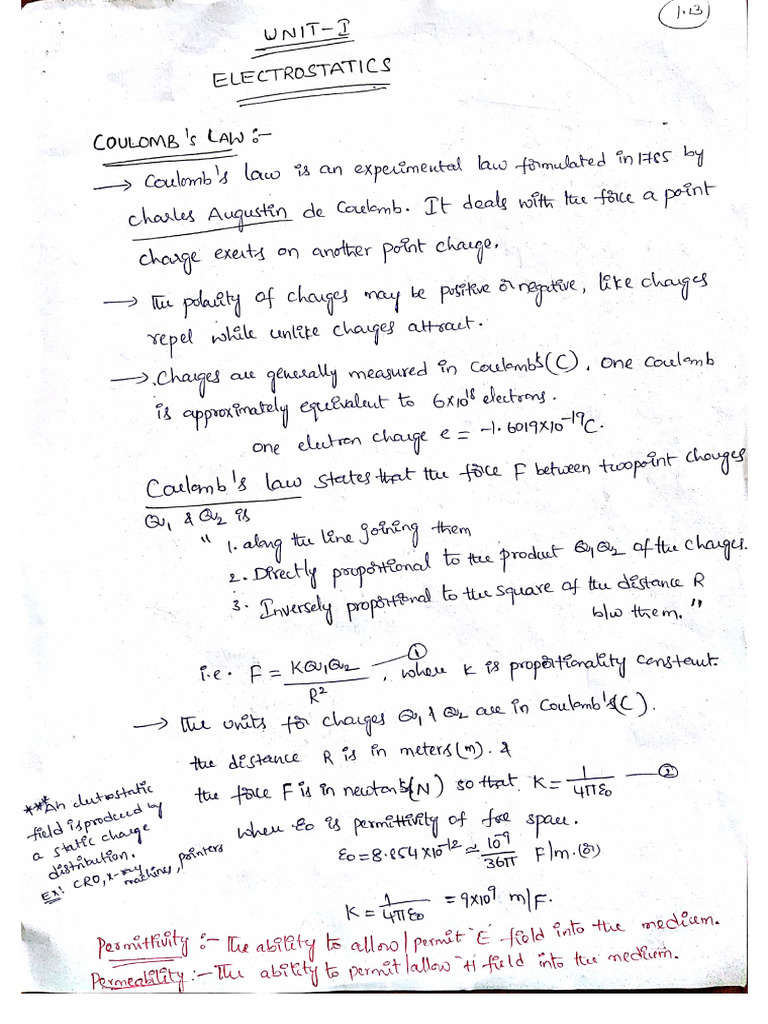 1.13
UNIT-I
ELECTROSTATICS
COULOMB'S LAW :-
→ Coulomb's law is an experimental law formulated in 1785 by
charles Augustin de Coulomb. It deals with the force a point
charge exerts on another point charge.
→ The polarity of charges may be positive or negative, like charges
repel while unlike charges attract.
→ Charges are generally measured in Coulomb's (C). One coulomb
is approximately equivalent to 6×10¹⁸ electrons.
one electron charge e = -1.6019×10⁻¹⁹C.
Coulomb's law states that the force F between two point charges
Q₁ & Q₂ is
" 1. along the line joining them
2. Directly proportional to the product Q₁Q₂ of the charges.
3. Inversely proportional to the square of the distance R
b/w them."
i.e. F = KQ₁Q₂ / R² — ①, where K is proportionality constant.
→ The units for charges Q₁ & Q₂ are in Coulomb's (C).
the distance R is in meters (m). &
the force F is in newton's (N) so that K = 1/4πε₀ — ②
where ε₀ is permittivity of free space.
ε₀ = 8.854×10⁻¹² ≃ 10⁻⁹/36π F/m. (or)
K = 1/4πε₀ = 9×10⁹ m/F.
*** An electrostatic
field is produced by
a static charge
distribution.
Ex: CRO, x-ray machines, pointers
Permittivity :- The ability to allow/permit 'E' field into the medium.
Permeability :- The ability to permit/allow 'H' field into the medium.